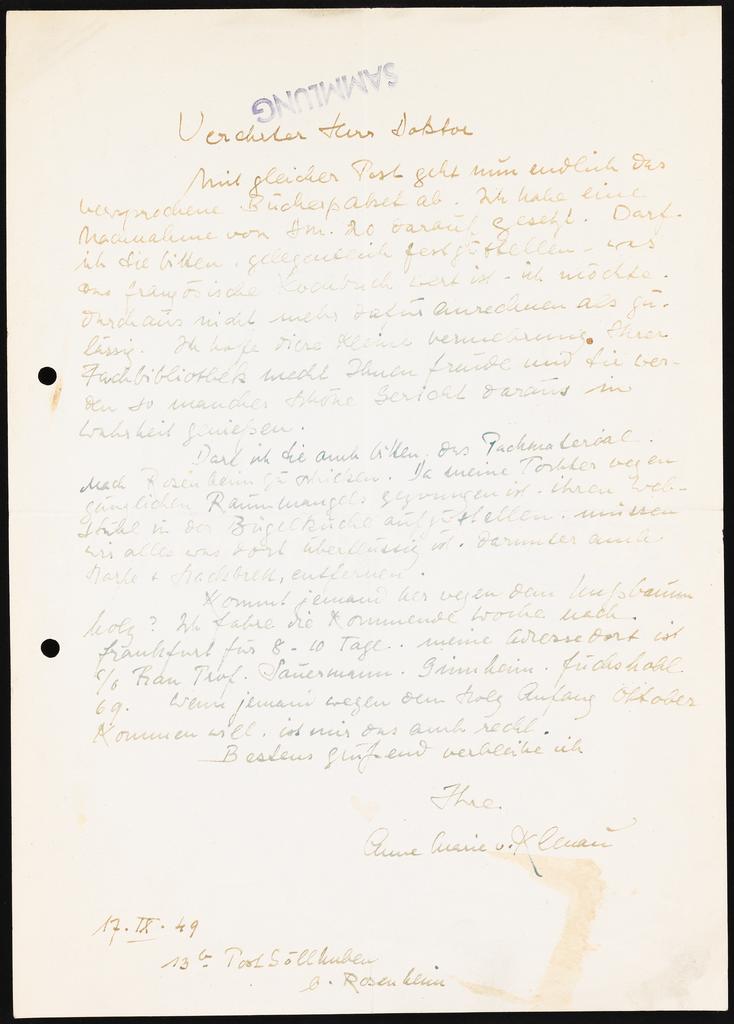 SAMMLUNG
Verehrter Herr Doktor
Mit gleicher Post geht nun endlich das
versprochene Bücherpaket ab. Ich habe eine
Nachnahme von Dm. 20 darauf gesetzt. Darf
ich Sie bitten, gelegentlich festzustellen - was
das französische Kochbuch wert ist - ich möchte
durchaus nicht mehr dafür anrechnen als zu-
lässig. Ich hoffe diese kleine Vermehrung Ihrer
Fachbibliothek macht Ihnen freude und Sie wer-
den so manches schöne Gericht daraus in
Wahrheit genießen.
Darf ich Sie auch bitten, das Packmaterial
nach Rosenheim zu schicken. Da meine Tochter wegen
gänzlichen Raummangels gezwungen ist - ihren Web-
stuhl in der Bügelküche aufzustellen, müssen
wir alles was dort überflüssig ist, darunter auch
Harfe + Hackbrett, entfernen.
Kommt jemand her wegen dem Nußbaum
holz? Ich fahre die kommende Woche nach
Frankfurt für 8 - 10 Tage. meine Adresse dort ist
c/o Frau Prof. Sauermann. Ginnheim. Fuchshohl
69. Wenn jemand wegen dem Holz Anfang Oktober
kommen will, ist mir das auch recht.
Bestens grüßend verbleibe ich
Ihre
Anne Marie v. Klenau
17. IX. 49
13b Post Söllhuben
b. Rosenheim